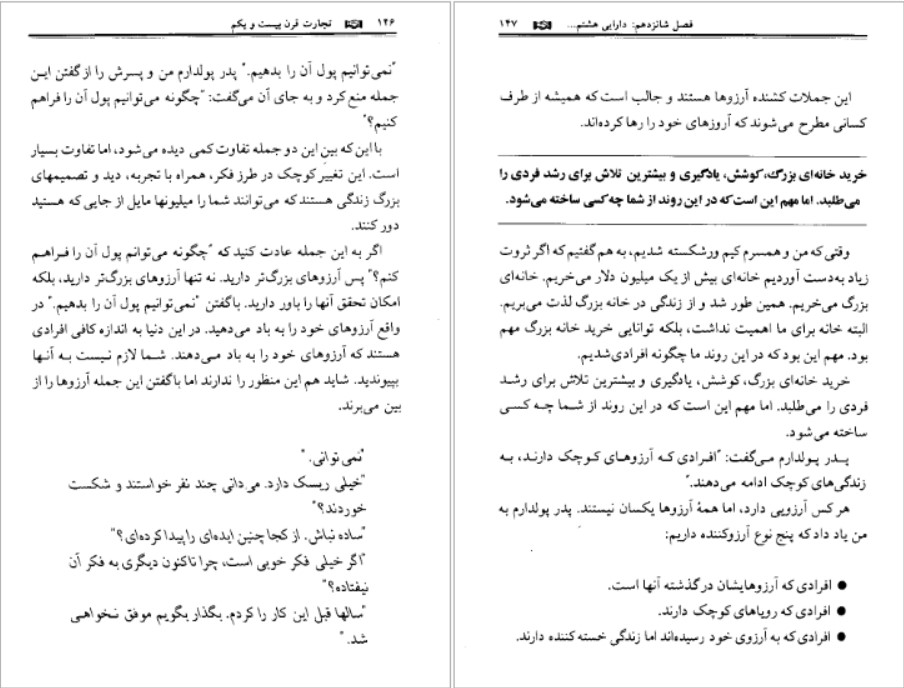 ۱۴۶ تجارت قرن بیست و یکم
"نمی‌توانیم پول آن را بدهیم." پدر پولدارم من و پسرش را از گفتن ایـن
جمله منع کرد و به جای آن می‌گفت: "چگونه می‌توانیم پول آن را فراهم
کنیم؟"
با این‌که بین این دو جمله تفاوت کمی دیده می‌شود، اما تفاوت بسیار
است. این تغییر کوچک در طرز فکر، همراه با تجربه، دید و تصمیمهای
بزرگ زندگی هستند که می‌توانند شما را میلیونها مایل از جایی که هستید
دور کنند.
اگر به این جمله عادت کنید که "چگونه می‌توانم پول آن را فـراهـم
کنم؟" پس آرزوهای بزرگ‌تر دارید. نه تنها آرزوهای بزرگ‌تر دارید، بلکه
امکان تحقق آنها را باور دارید. با گفتن "نمی‌توانیم پول آن را بدهیم." در
واقع آرزوهای خود را به باد می‌دهید. در این دنیا به اندازه کافی افرادی
هستند که آرزوهای خود را به باد مـی‌دهند. شـما لازم نیست بـه آنـها
بپیوندید. شاید هم این منظور را ندارند اما با گفتن این جمله آرزوها را از
بین می‌برند.
"نمی‌توانی."
"خیلی ریسک دارد. می‌دانی چند نفر خواستند و شکست
خوردند؟"
"ساده نباش. از کجا چنین ایده‌ای را پیدا کرده‌ای؟"
"اگر خیلی فکر خوبی است، چرا تاکنون دیگری به فکر آن
نیفتاده؟"
"سالها قبل این کار را کردم. بگذار بگویم موفق نـخواهـی
شد."
فصل شانزدهم: دارایی هشتم... ۱۴۷
این جملات کشنده آرزوها هستند و جالب است که همیشه از طرف
کسانی مطرح می‌شوند که آروزهای خود را رها کرده‌اند.
خرید خانه‌ای بزرگ، کوشش، یادگیری و بیشترین تلاش برای رشد فردی را
می‌طلبد. اما مهم این است که در این روند از شما چه کسی ساخته می‌شود.
وقتی که من و همسرم کیم ورشکسته شدیم، به هم گفتیم که اگر ثروت
زیاد به‌دست آوردیم خانه‌ای بیش از یک میلیون دلار می‌خریم. خانه‌ای
بزرگ می‌خریم. همین طور شد و از زندگی در خانه بزرگ لذت می‌بریم.
البته خانه برای ما اهمیت نداشت، بلکه توانایی خرید خانه بزرگ مهم
بود. مهم این بود که در این روند ما چگونه افرادی شدیم.
خرید خانه‌ای بزرگ، کوشش، یادگیری و بیشترین تلاش برای رشـد
فردی را می‌طلبد. اما مهم این است که در این روند از شـما چـه کسـی
ساخته می‌شود.
پـدر پـولدارم مـی‌گفت: "افـرادی کـه آرزوهـای کـوچک دارنـد، بـه
زندگی‌های کوچک ادامه می‌دهند."
هر کس آرزویی دارد، اما همهٔ آرزوها یکسان نیستند. پدر پولدارم به
من یاد داد که پنج نوع آرزوکننده داریم:
● افرادی که آرزوهایشان در گذشته آنها است.
● افرادی که رویاهای کوچک دارند.
● افرادی که به آرزوی خود رسیده‌اند اما زندگی خسته کننده دارند.